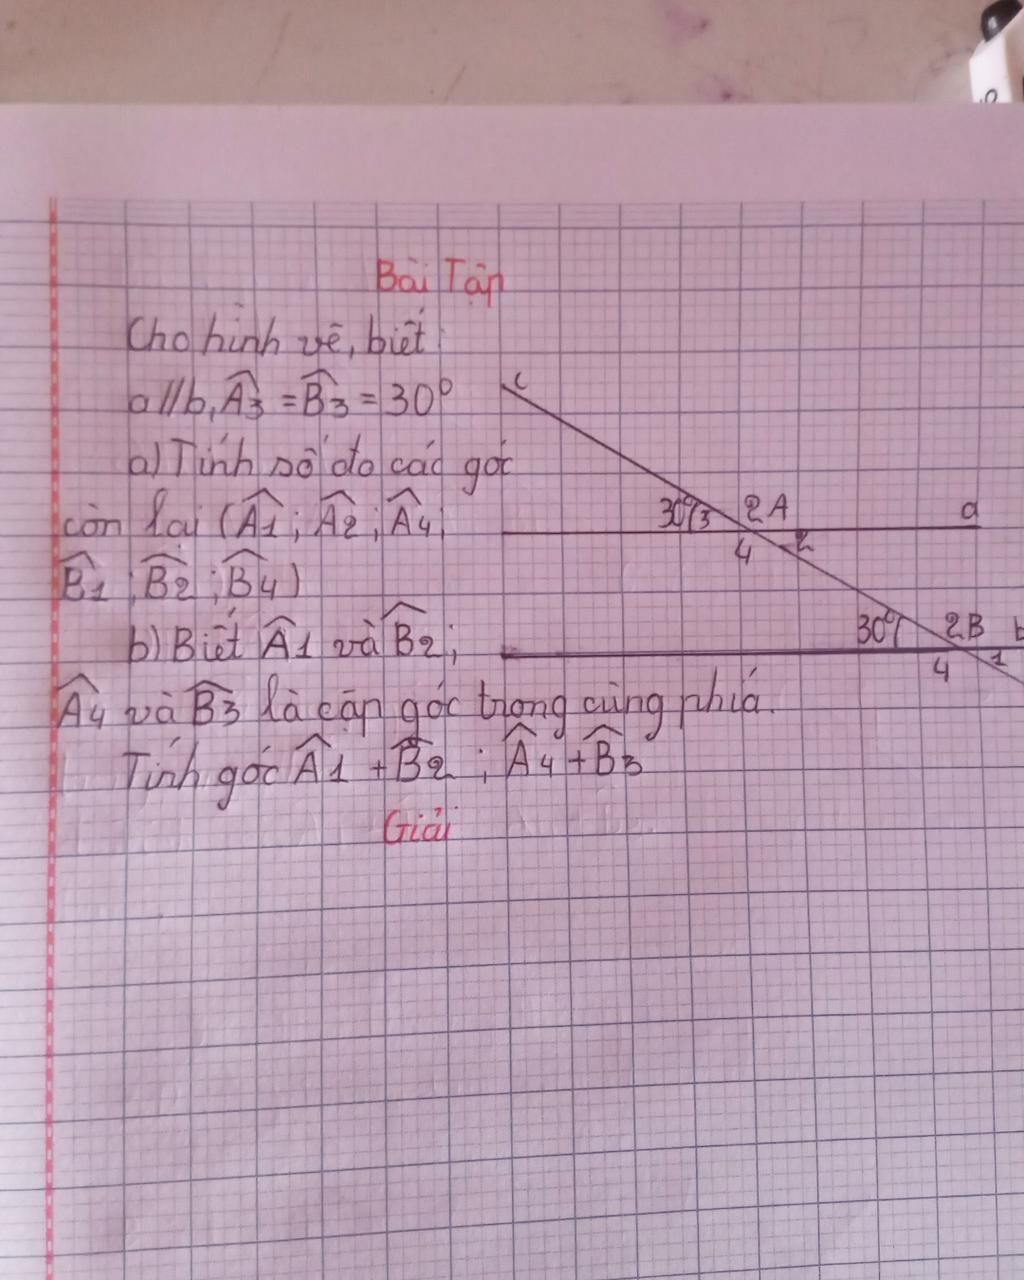 Bài Tập
Cho hình vẽ, biết:
a//b, Â3 = B̂3 = 30°
a) Tính số đo các góc
còn lại (Â1; Â2; Â4;
B̂1; B̂2; B̂4)
b) Biết Â1 và B̂2;
Â4 và B̂3 là cặp góc trong cùng phía.
Tính góc Â1 + B̂2; Â4 + B̂3
Giải
c
30° 3 2 A a
4
30° 2 B b
4 1